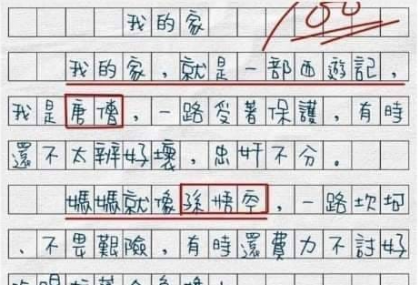 我的家 100
我的家，就是一部西遊記，
我是唐僧，一路受著保護，有時
還不太辨好壞，忠奸不分。
媽媽就像孫悟空，一路坎坷
、不畏艱險，有時還費力不討好